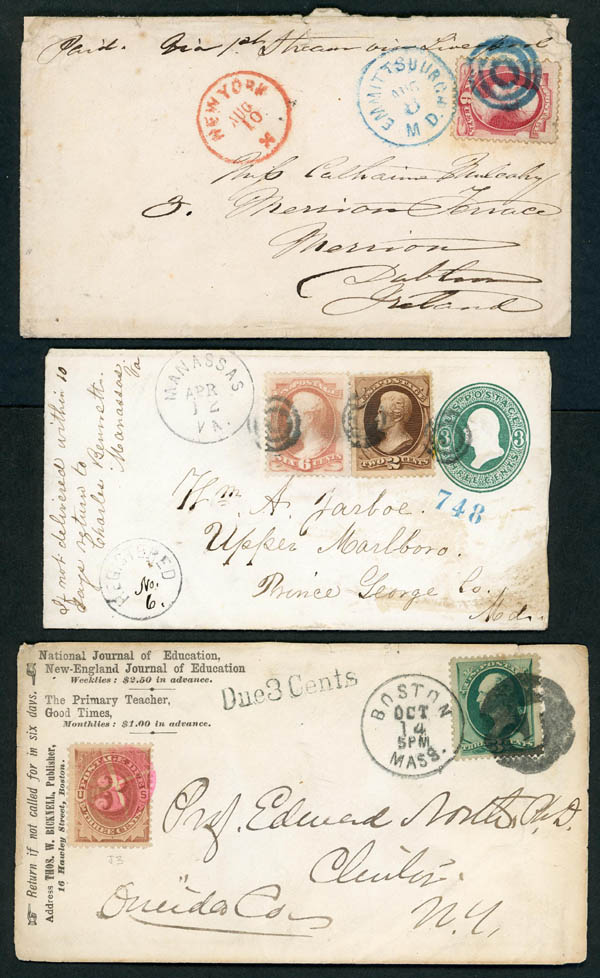 Paid. Via 1st Steam via Liverpool
NEW YORK
AUG
10
EMMITTSBURGH
AUG
8
MD.
Miss Catharine Mulcahy
3. Merrion Terrace
Merrion
Dublin
Ireland
If not delivered within 10
days return to
Charles Bennett.
Manassas.
Va
MANASSAS
APR
12
VA.
SIX 6 CENTS
U.S. POSTAGE
TWO 2 CENTS
U.S. POSTAGE
3 3
THREE CENTS
748
Wm. A. Jarboe.
Upper Marlboro.
Prince George Co.
Md.
REGISTERED
No.
6.
National Journal of Education,
New-England Journal of Education
Weeklies: $2.50 in advance.
The Primary Teacher,
Good Times,
Monthlies: $1.00 in advance.
Return if not called for in six days.
Address THOS. W. BICKNELL, Publisher,
16 Hawley Street, Boston.
Due 3 Cents
BOSTON
OCT
14
5PM
MASS.
THREE CENTS
POSTAGE DUE
U S
3
THREE CENTS
J3
Prof. Edward North, P.D.
Clinton
Oneida Co
N.Y.